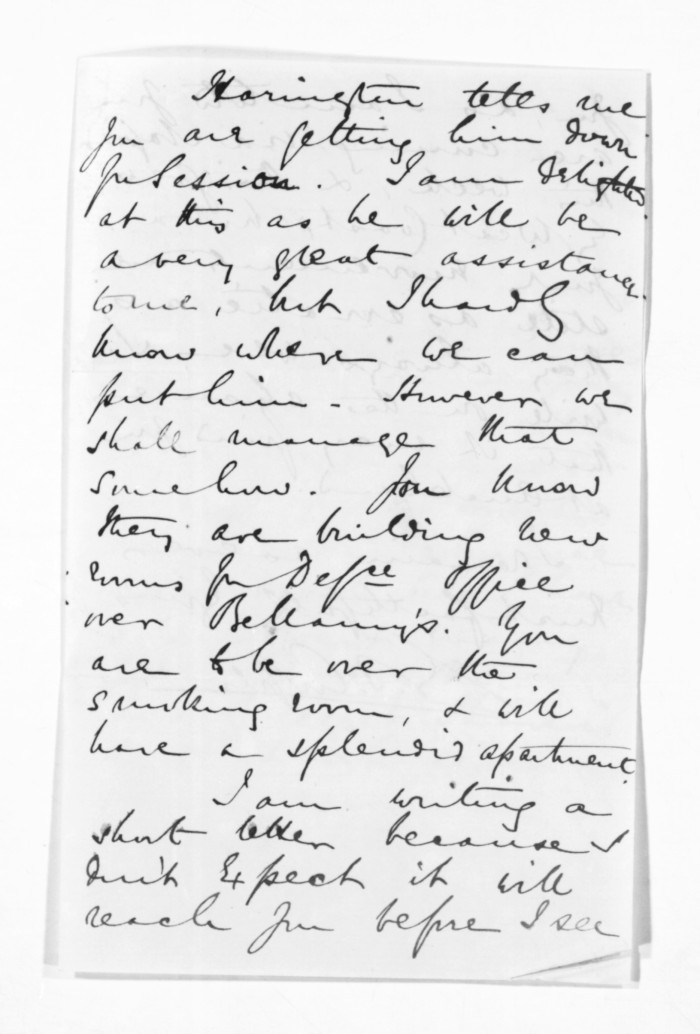 Harington tells me
you are getting him down
for Session. I am delighted
at this as he will be
a very great assistance
to me, but I hardly
know where we can
put him - However we
shall manage that
somehow. You know
they are building new
rooms for Defce Office
over Bellamy's. You
are to be over the
smoking room, & will
have a splendid apartment.
I am writing a
short letter because I
don't expect it will
reach you before I see